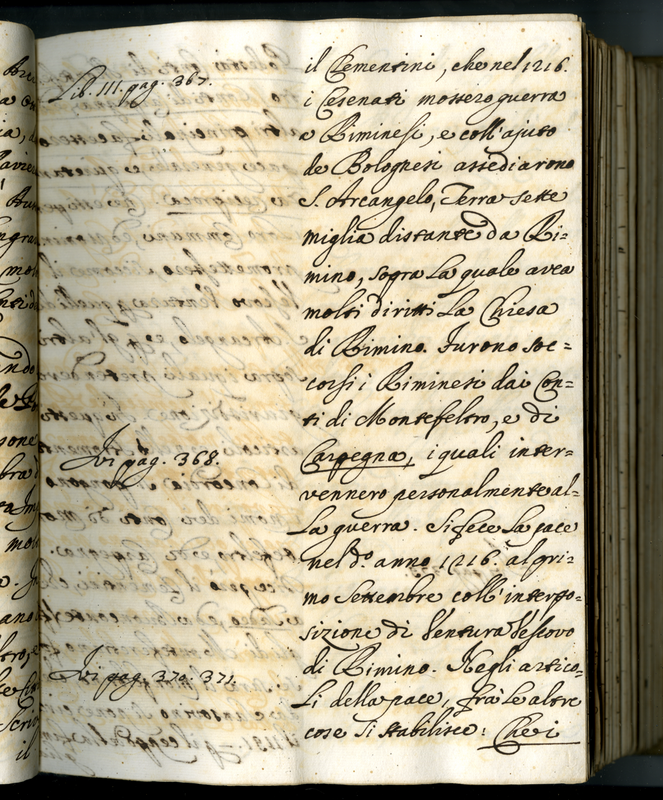 Lib. III. pag. 367.
Ivi pag. 368.
Ivi pag. 370. 371.
il Clementini, che nel 1216.
i Cesenati mossero guerra
a Riminesi, e coll' ajuto
de Bolognesi assediarono
S. Arcangelo, Terra sette
miglia distante da Ri=
mino, sopra la quale avea
molti diritti la Chiesa
di Rimino. Furono soc=
corsi i Riminesi dai Con=
ti di Montefeltro, e di
Carpegna, i quali inter=
vennero personalmente al=
la guerra. Si fece la pace
nel d.º anno 1216. al pri=
mo Settembre coll' interpo=
sizione di Ventura Vescovo
di Rimino. Negli artico=
li della pace, frà le altre
cose si stabilisce: Che i